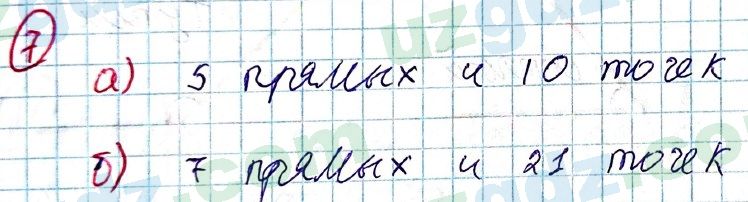 7
а) 5 прямых и 10 точек
б) 7 прямых и 21 точек